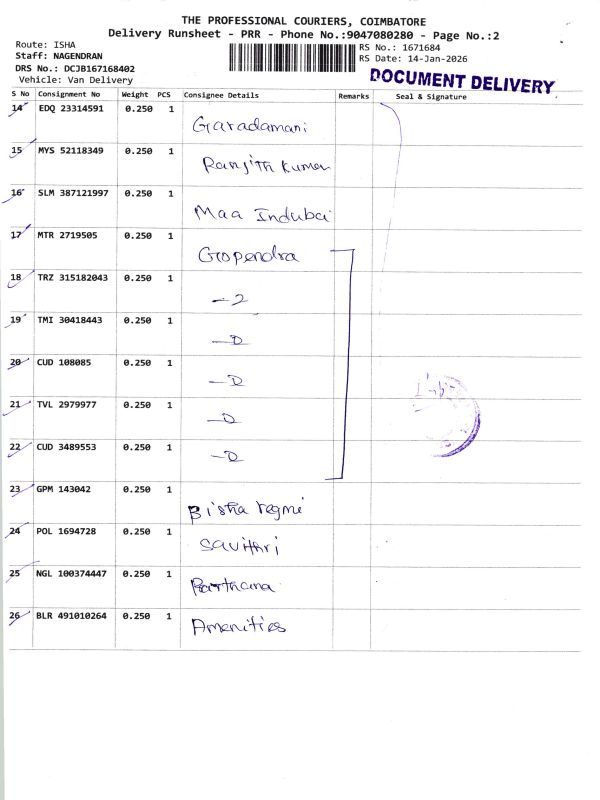 THE PROFESSIONAL COURIERS, COIMBATORE
Delivery Runsheet - PRR - Phone No.:9047080280 - Page No.:2
Route: ISHA
Staff: NAGENDRAN
DRS No.: DCJB167168402
Vehicle: Van Delivery
RS No.: 1671684
RS Date: 14-Jan-2026
DOCUMENT DELIVERY
S No Consignment No Weight PCS Consignee Details Remarks Seal & Signature
14 EDQ 23314591 0.250 1 Garadamani
15 MYS 52118349 0.250 1 Ranjith Kumar
16 SLM 387121997 0.250 1 Maa Indubai
17 MTR 2719505 0.250 1 Gopendra
18 TRZ 315182043 0.250 1 -2
19 TMI 30418443 0.250 1 -D
20 CUD 108085 0.250 1 -D
21 TVL 2979977 0.250 1 -D
22 CUD 3489553 0.250 1 -D
23 GPM 143042 0.250 1 Bisha regmi
24 POL 1694728 0.250 1 Savithri
25 NGL 100374447 0.250 1 Parthana
26 BLR 491010264 0.250 1 Amenities